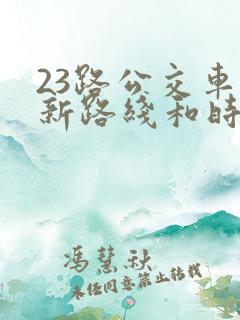 23路公交车
新路线和时
冯慧秋
未经同意禁止转载